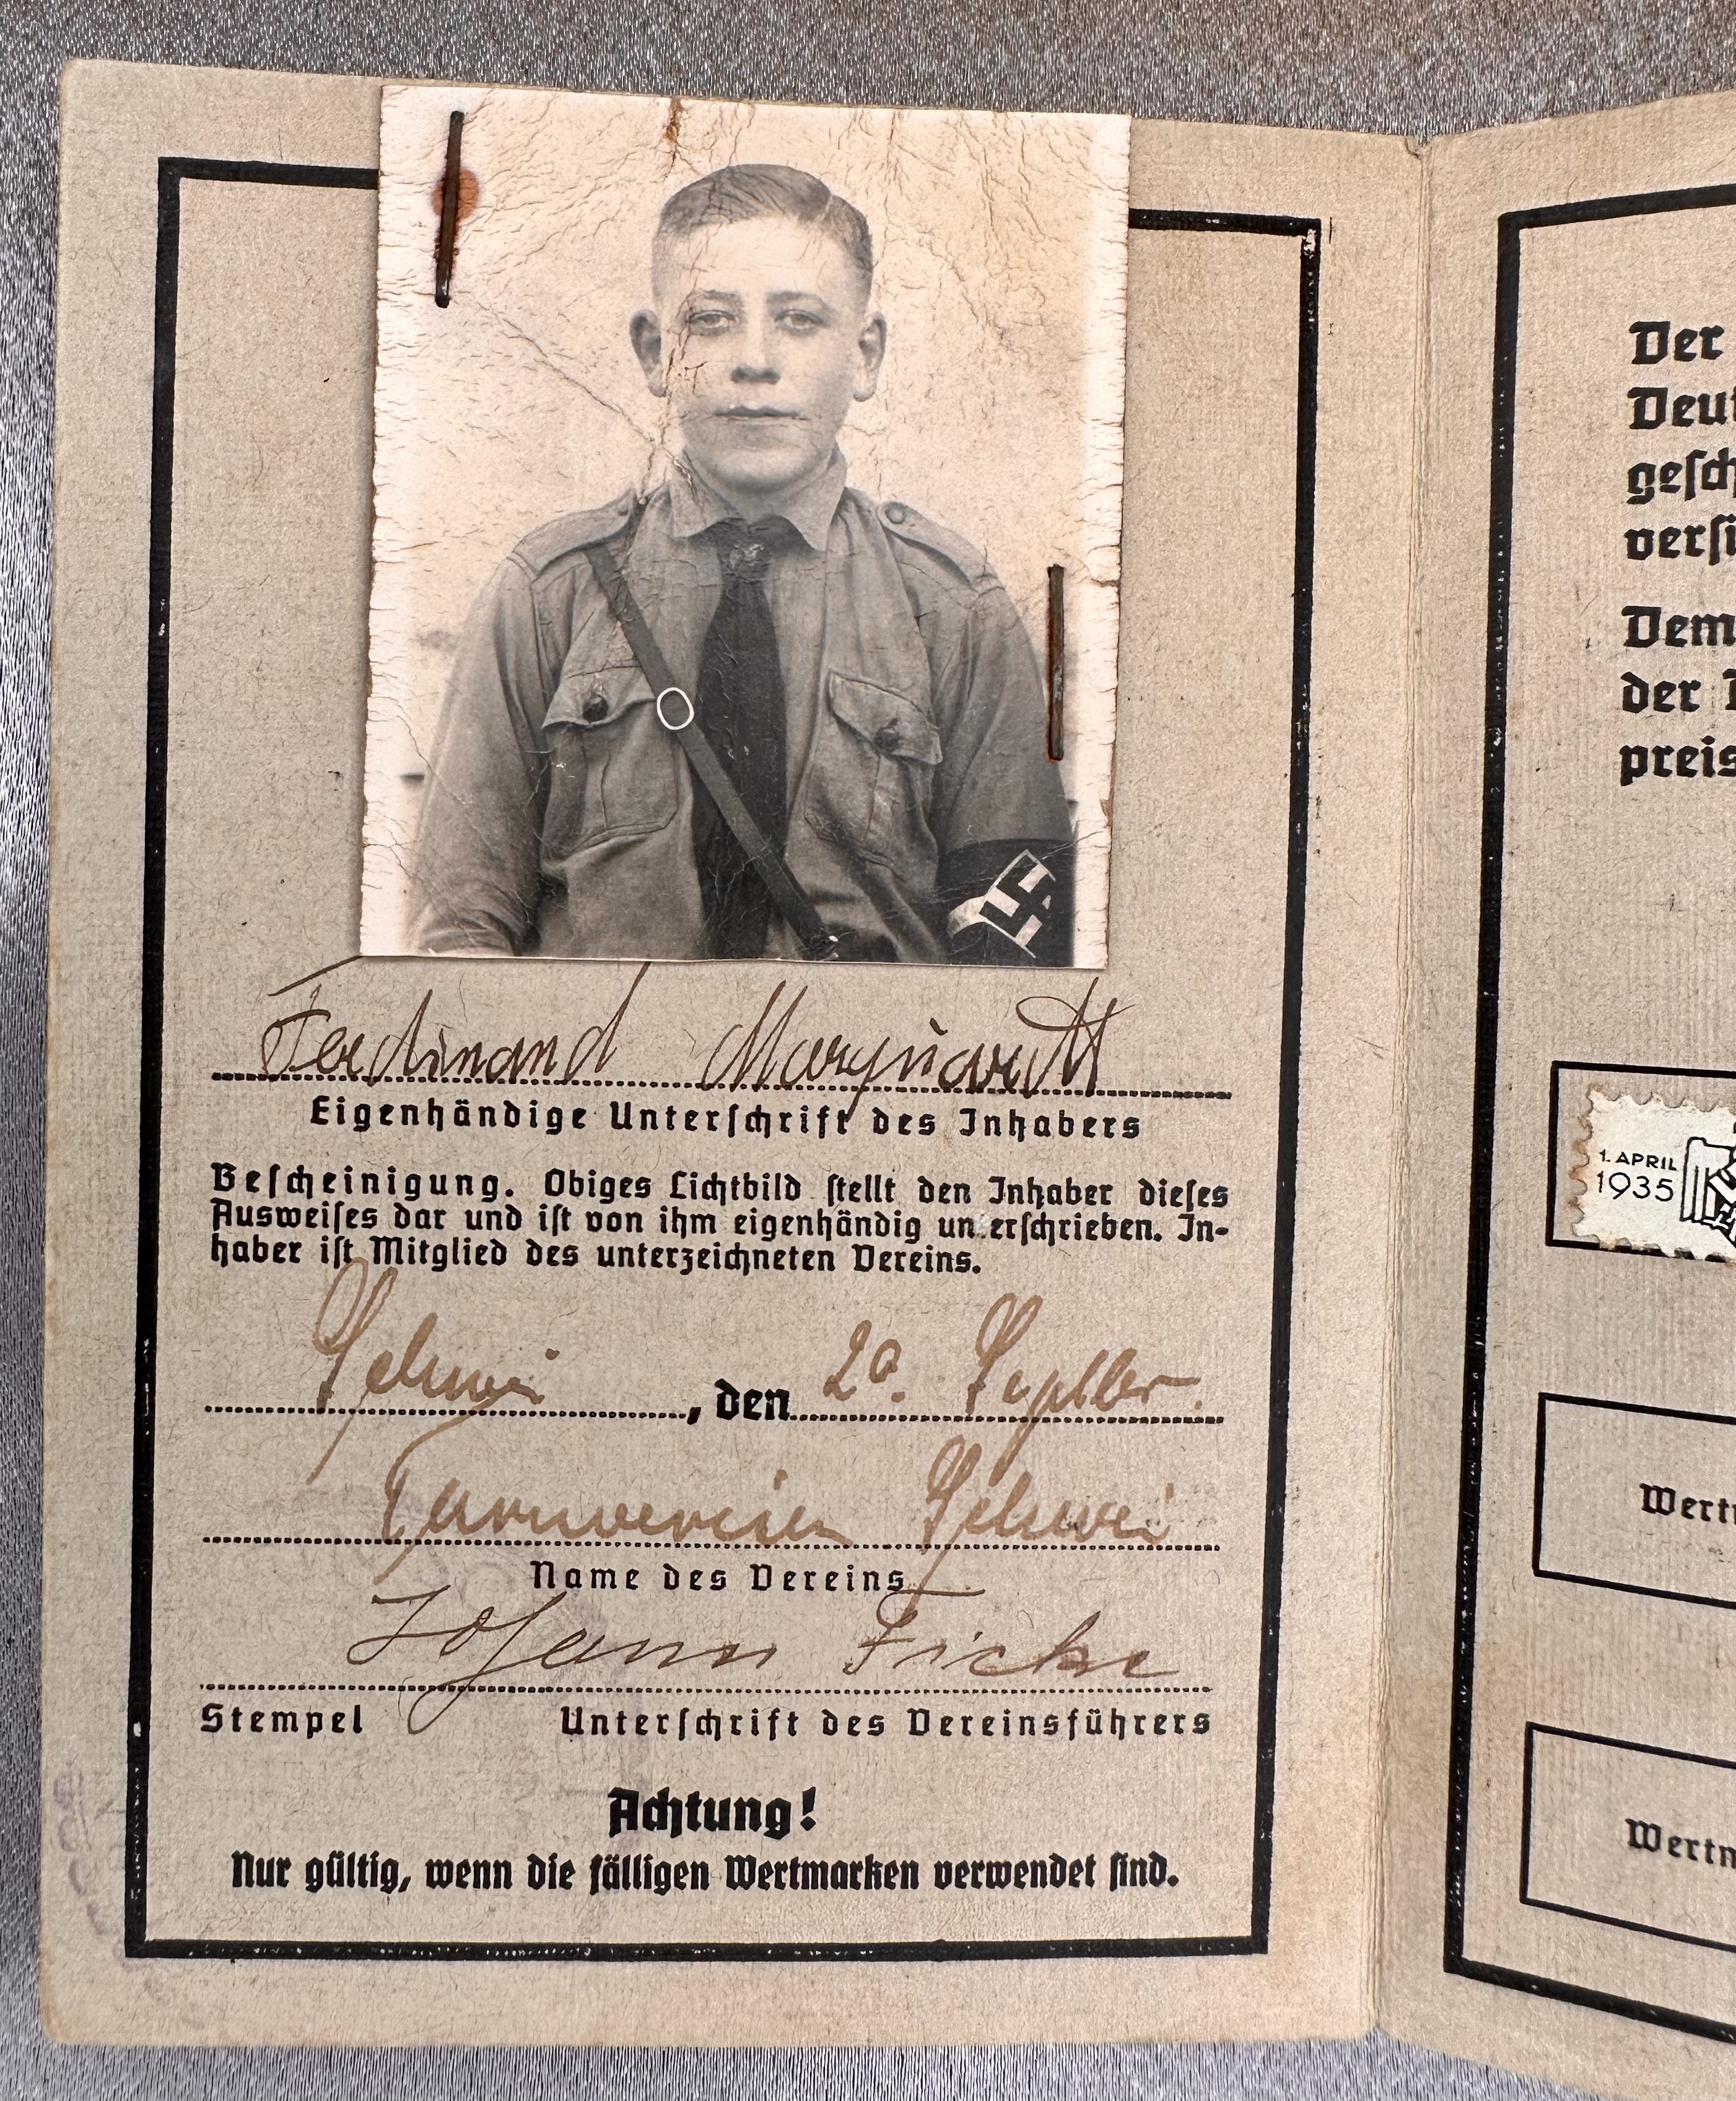 Ferdinand Marquardt
Eigenhändige Unterſchrift des Inhabers
Beſcheinigung. Obiges Lichtbild ſtellt den Inhaber dieſes
Ausweiſes dar und iſt von ihm eigenhändig un erſchrieben. In-
haber iſt Mitglied des unterzeichneten Vereins.
Schwei, den 20. Septber.
Turnverein Schwei
Name des Vereins
Johann Ficke
Stempel Unterſchrift des Vereinsführers
Achtung!
Nur gültig, wenn die fälligen Wertmarken verwendet ſind.
Der
Deut
geſch
verſi
Dem
der
preis
1. APRIL
1935
Wert
Wertm